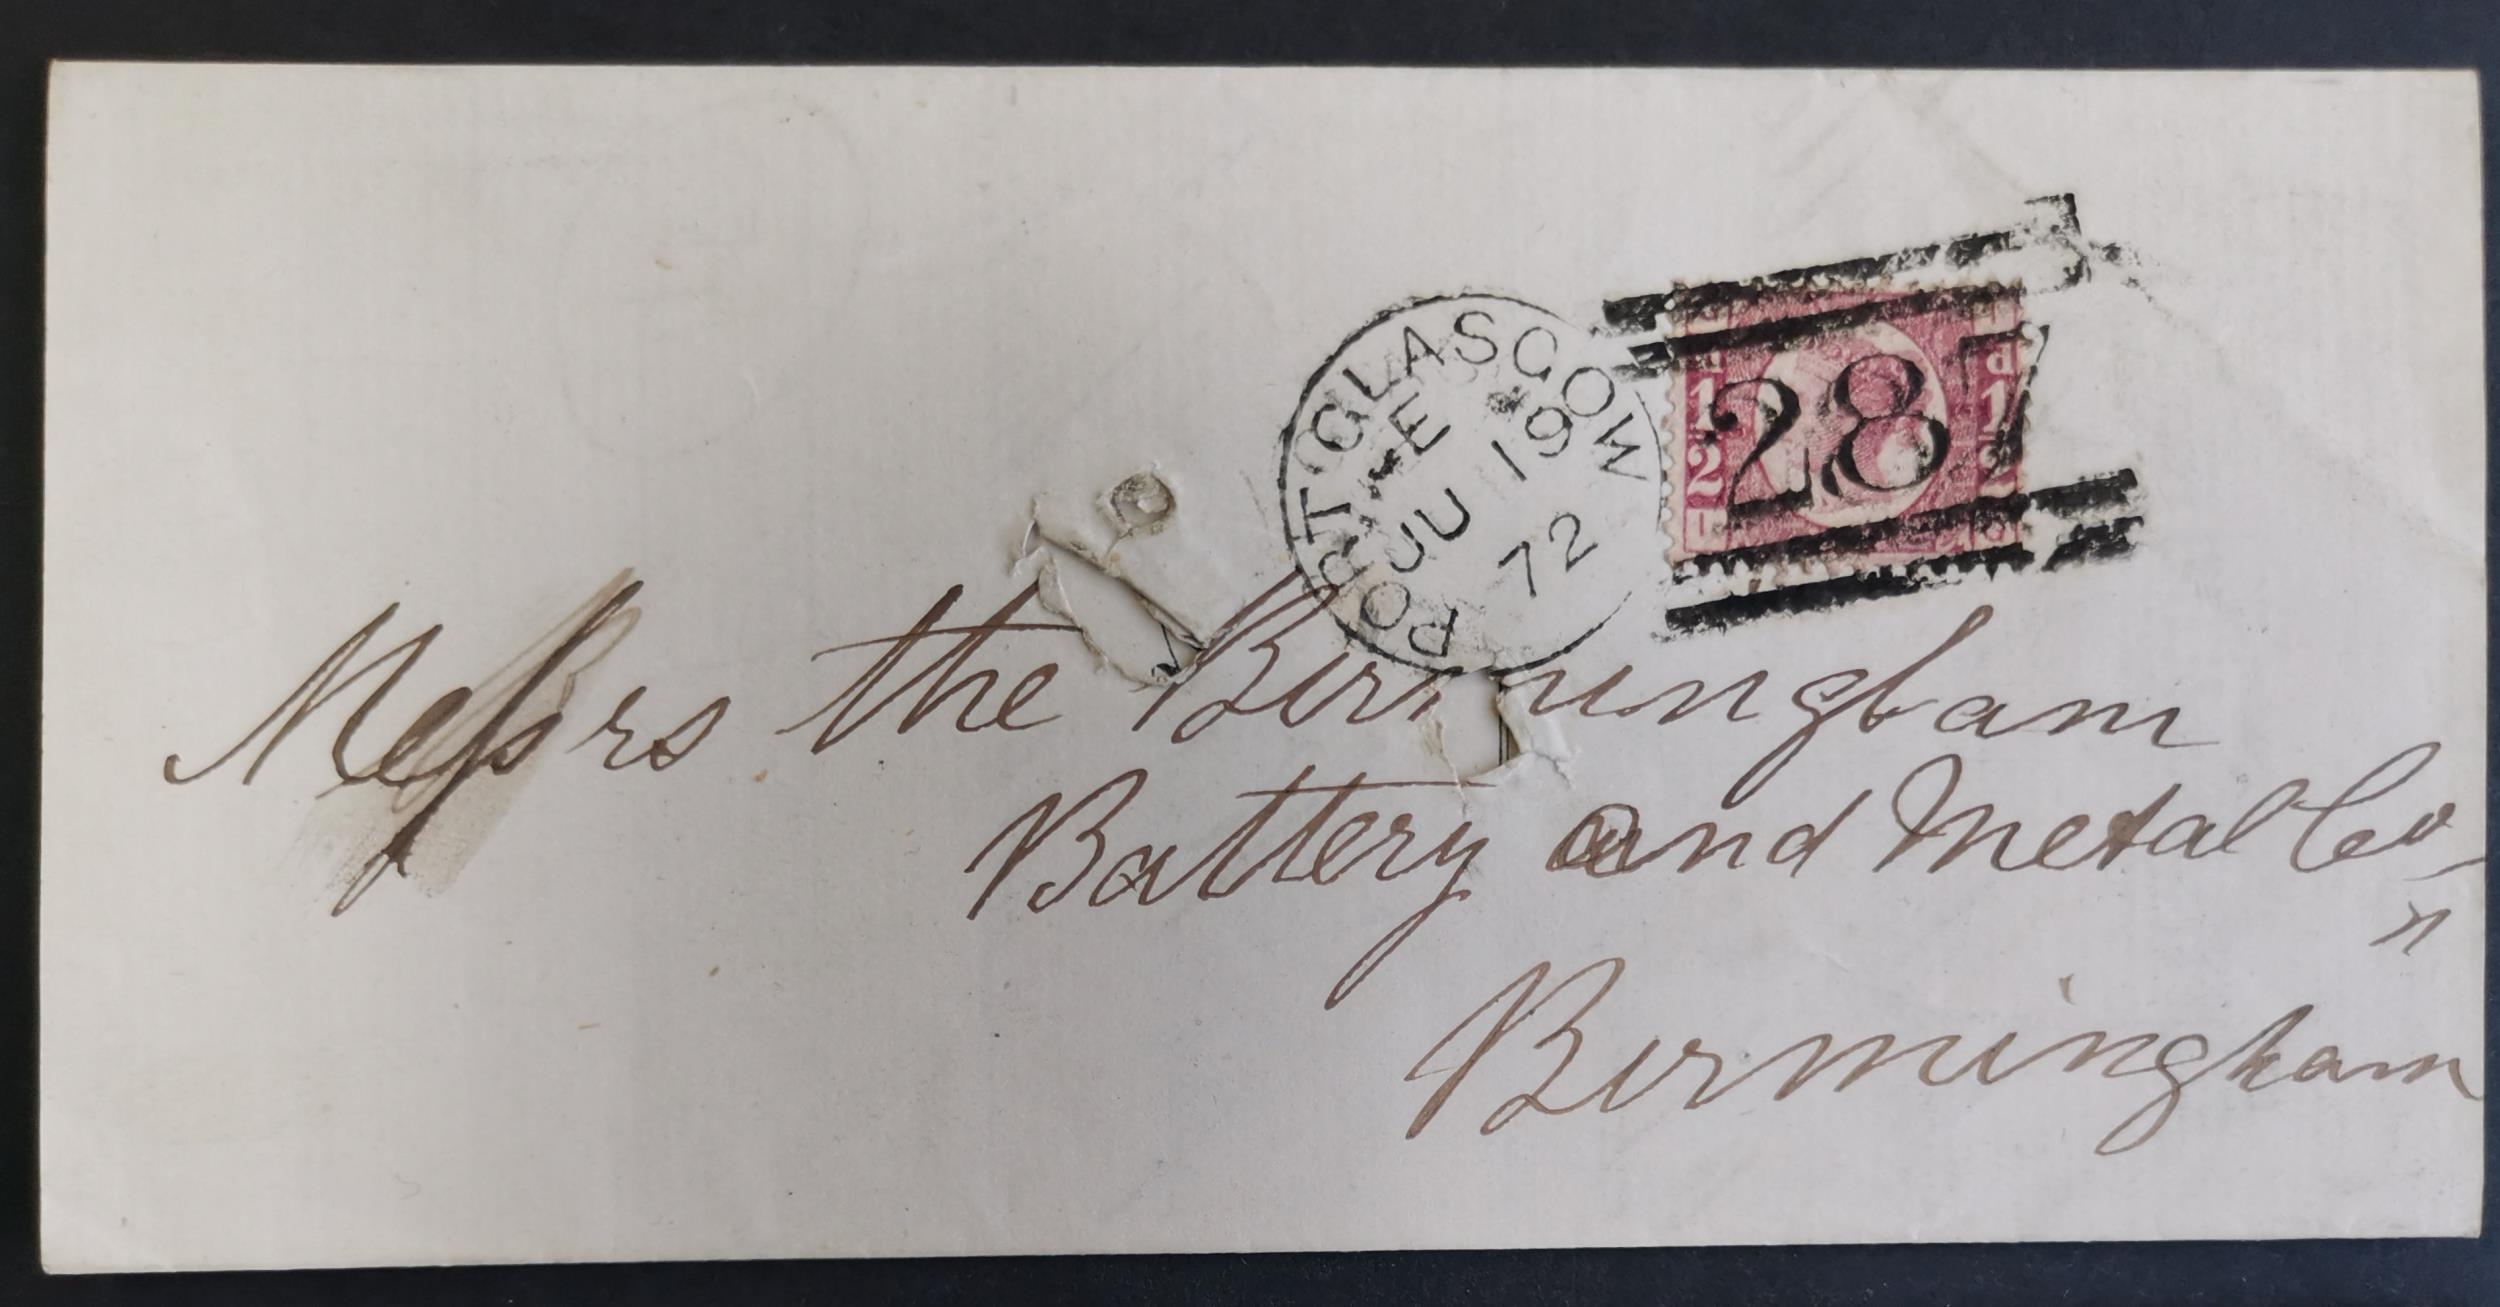 PORT-GLASGOW
E
JU 19
72
287
d
1
2
d
1
2
Messrs the Birmingham
Battery and Metal Co
"
Birmingham